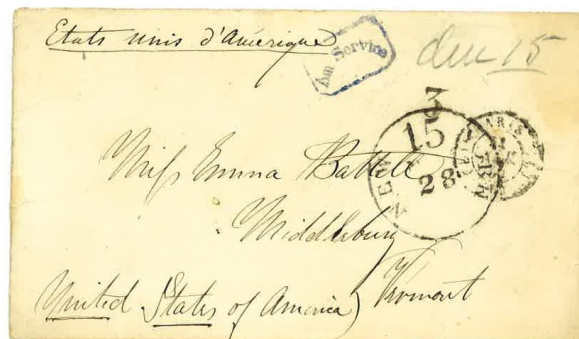 Etats unis d'Amérique
Am Service
due 15
3
15
NEW
28
PARIS
Miss Emma Battell
Middlebury
Vermont
(United States of America)